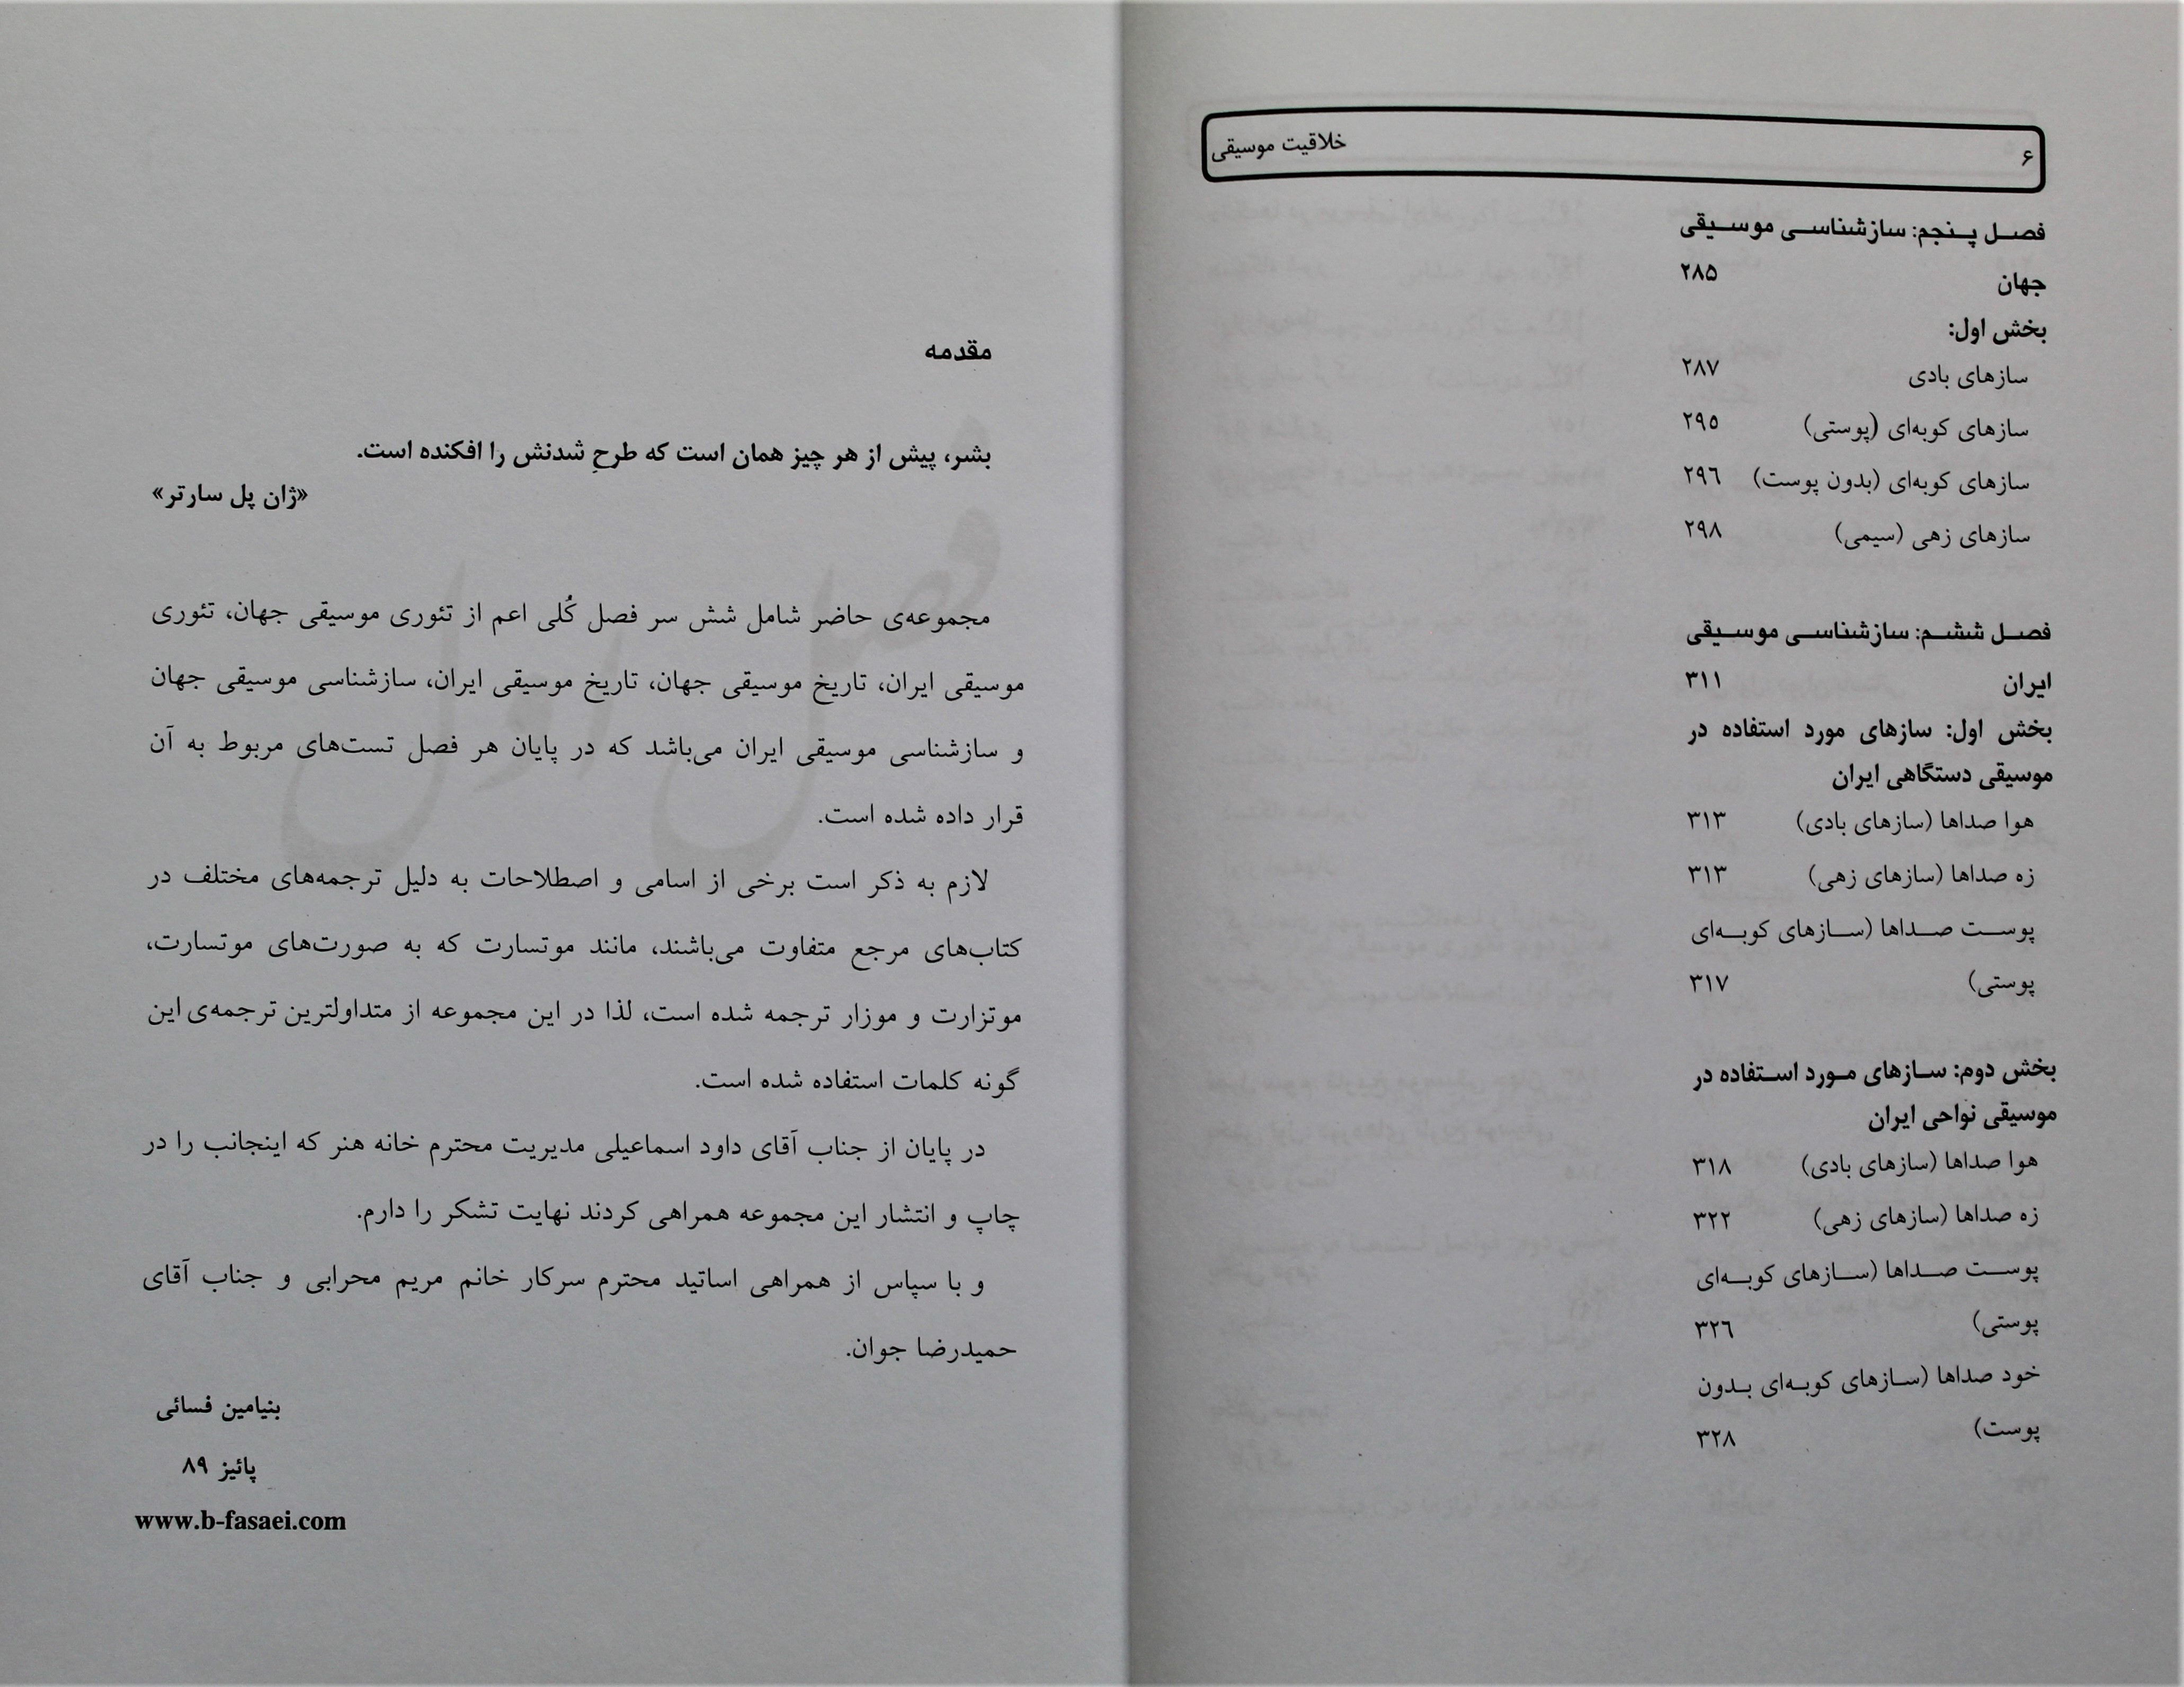 ۶ خلاقیت موسیقی
فصل پنجم: سازشناسی موسیقی
جهان ۲۸۵
بخش اول:
سازهای بادی ۲۸۷
سازهای کوبه‌ای (پوستی) ۲۹۵
سازهای کوبه‌ای (بدون پوست) ۲۹۶
سازهای زهی (سیمی) ۲۹۸
فصل ششم: سازشناسی موسیقی
ایران ۳۱۱
بخش اول: سازهای مورد استفاده در
موسیقی دستگاهی ایران
هوا صداها (سازهای بادی) ۳۱۳
زه صداها (سازهای زهی) ۳۱۳
پوست صداها (سازهای کوبه‌ای
پوستی) ۳۱۷
بخش دوم: سازهای مورد استفاده در
موسیقی نواحی ایران
هوا صداها (سازهای بادی) ۳۱۸
زه صداها (سازهای زهی) ۳۲۲
پوست صداها (سازهای کوبه‌ای
پوستی) ۳۲۶
خود صداها (سازهای کوبه‌ای بدون
پوست) ۳۲۸
مقدمه
بشر، پیش از هر چیز همان است که طرحِ شدنش را افکنده است.
«ژان پل سارتر»
مجموعه‌ی حاضر شامل شش سر فصل کُلی اعم از تئوری موسیقی جهان، تئوری
موسیقی ایران، تاریخ موسیقی جهان، تاریخ موسیقی ایران، سازشناسی موسیقی جهان
و سازشناسی موسیقی ایران می‌باشد که در پایان هر فصل تست‌های مربوط به آن
قرار داده شده است.
لازم به ذکر است برخی از اسامی و اصطلاحات به دلیل ترجمه‌های مختلف در
کتاب‌های مرجع متفاوت می‌باشند، مانند موتسارت که به صورت‌های موتسارت،
موتزارت و موزار ترجمه شده است، لذا در این مجموعه از متداولترین ترجمه‌ی این
گونه کلمات استفاده شده است.
در پایان از جناب آقای داود اسماعیلی مدیریت محترم خانه هنر که اینجانب را در
چاپ و انتشار این مجموعه همراهی کردند نهایت تشکر را دارم.
و با سپاس از همراهی اساتید محترم سرکار خانم مریم محرابی و جناب آقای
حمیدرضا جوان.
بنیامین فسائی
پائیز ۸۹
www.b-fasaei.com